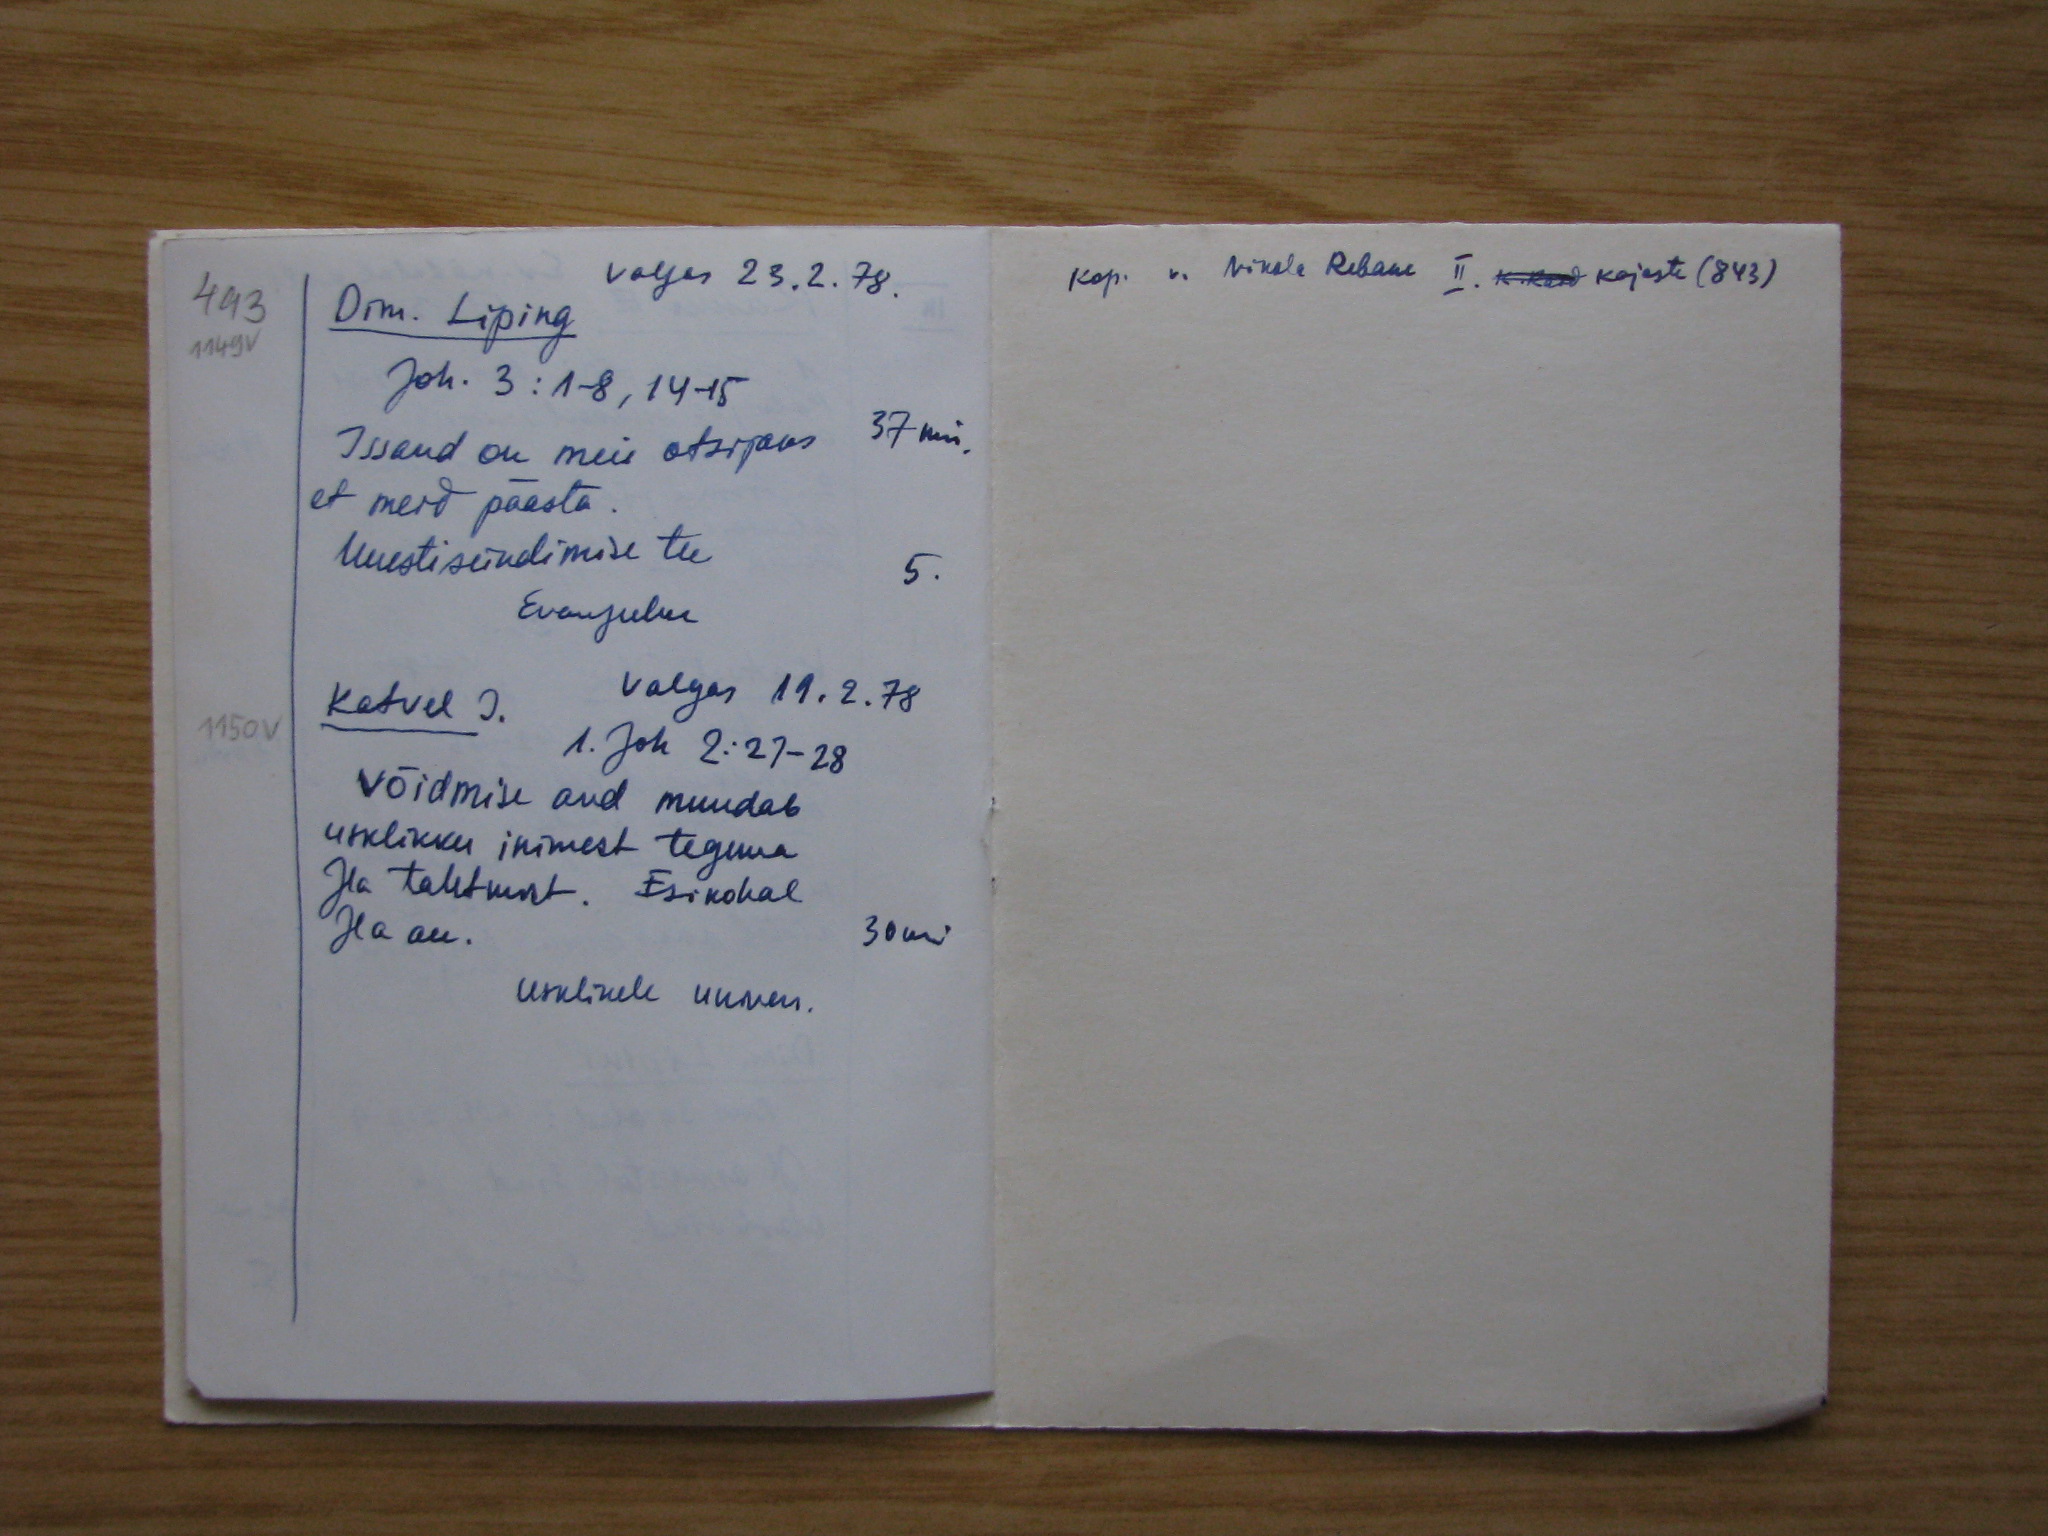 493
1149V
Valgas 23.2.78.
Dim. Liping
Joh. 3:1-8, 14-15
Issand on meie otsijaks 37 min.
et meid päästa.
Uuestisündimise tee 5.
Evangeelne
1150V
Valgas 19.2.78
Katvel J.
1. Joh 2:27-28
Võidmise and muudab
usklikku inimest tegema
Jla tahtmist. Esikohal
Jla au. 30 min
usklikele
Kop. v. Nikola Rebane II. kajaste (843)